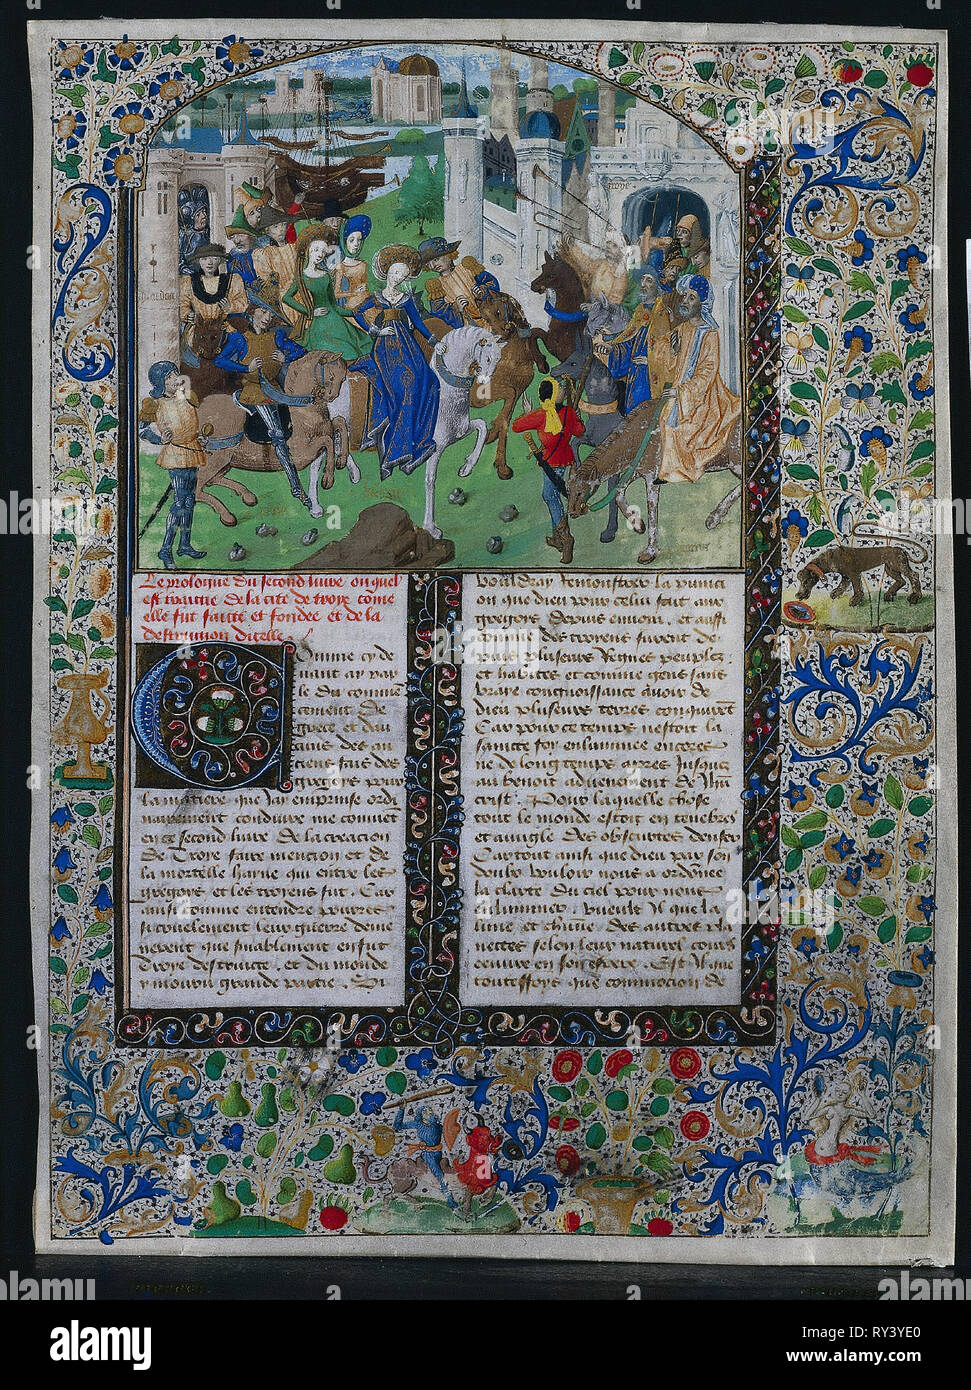 troye
Le prologue du second livre ouquel
est traittie de la cite de troye come
elle fut faitte et fondee et de la
destruction dicelle.
Comme cy de
uant ay par
le du comme
cement de
grece et dau
cuns des an
ciens fais des
gregoys pour
la matiere que jay emprinse ordi
nairement conduire me conuient
en ce second liure de la creacion
de Troye faire mention et de
la mortelle hayne qui entre les
gregoys et les troyens fut. Car
ainsi comme entendre pourres
successiuement leur guerre deme
nerent que finablement en fut
Troye destruicte. et du monde
y mouru grande partie. Si
vouldray remonstrer la punici
on que dieu pour celui fait aux
gregoys depuis enuoia. et aussi
comme des troyens furent de
puis pluseurs Regnes peuplez.
et habites et comme gens sans
vraye congnoissance auoir de
dieu pluseurs terres conquirent
Car pour ce temps nestoit la
saincte foy enluminee encores
ne de long temps apres jusques
au benoit aduenement de Jhu
crist. Pour laquelle chose
tout le monde estoit en tenebres
et auugle des obscurtes denfer
Car tout ainsi que dieu par son
doulx vouloir nous a ordonne
la clarte du ciel pour nous
alluminer. vueule Il que la
lune et chune des autres pla
nettes selon leur naturel cours
euure en son espere. Est il que
touteffoys que commocion de
alamy
alamy
Image ID: RY3YE0
www.alamy.com